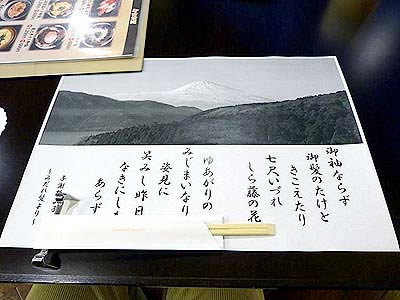 御袖ならず
御髪のたけと
きこえたり
七尺いづれ
しら藤の花
ゆあがりの
みじまいなり
姿見に
笑みし昨日
なきにし
あらず
与謝
みだれ髪より